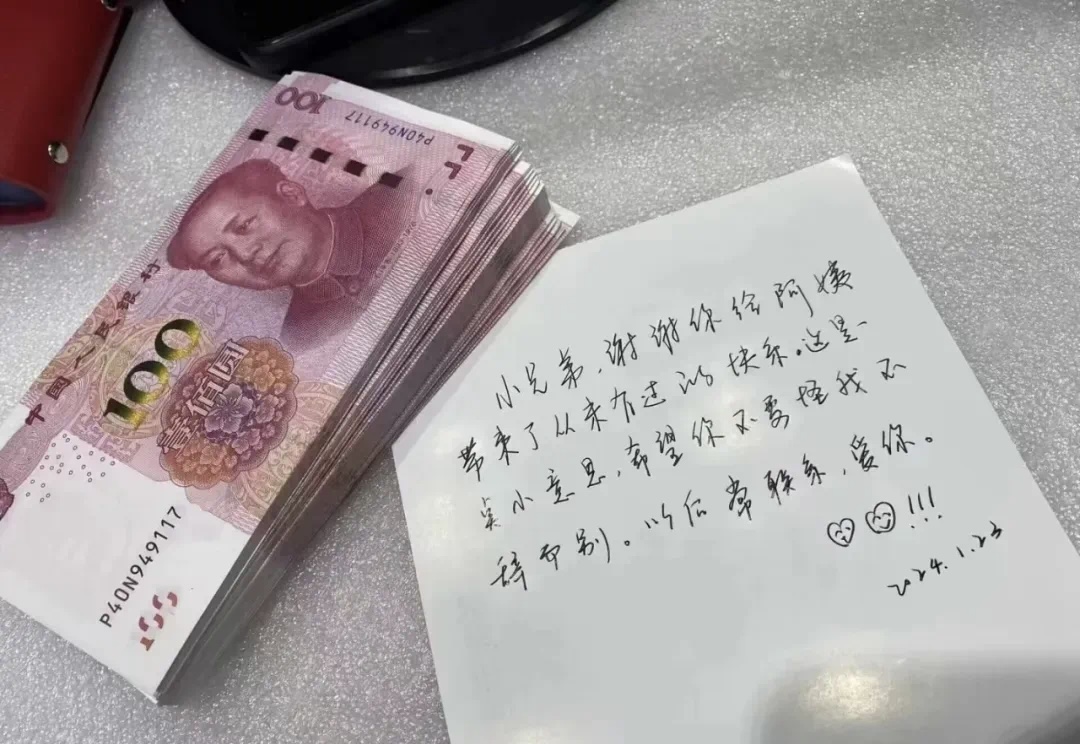 100
P40N949117
中国人民银行
100
壹佰圆
P40N949117
100
小兄弟，谢谢你给阿姨
带来了从来有过的快乐。这是
点小意思，希望你不要怪我不
辞而别。以后常联系，爱你。
!!!
2024.1.23